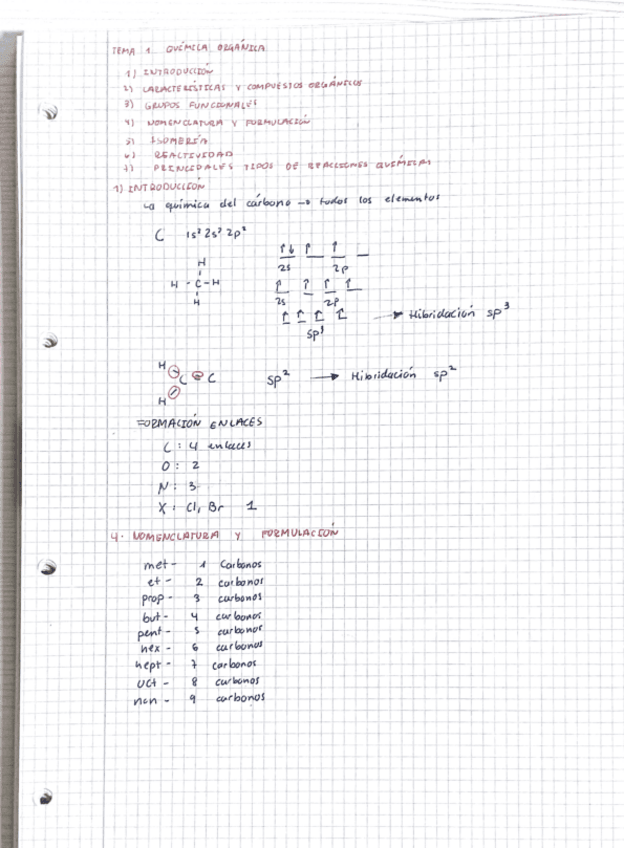 TEMA 1. QUÍMICA ORGÁNICA
1) INTRODUCCIÓN
2) CARACTERÍSTICAS Y COMPUESTOS ORGÁNICOS
3) GRUPOS FUNCIONALES
4) NOMENCLATURA Y FORMULACIÓN
5) ISOMERÍA
6) REACTIVIDAD
7) PRINCIPALES TIPOS DE REACCIONES QUÍMICAS
1) INTRODUCCIÓN
La química del carbono → todos los elementos
C 1s² 2s² 2p²
2s 2p
H
H - C - H
H
2s 2p
sp³ → Hibridación sp³
H
C C
H
sp² → Hibridación sp²
FORMACIÓN ENLACES
C : 4 enlaces
O : 2
N : 3
X : Cl, Br 1
4. NOMENCLATURA Y FORMULACIÓN
met - 1 Carbonos
et - 2 carbonos
prop - 3 carbonos
but - 4 carbonos
pent - 5 carbonos
hex - 6 carbonos
hept - 7 carbonos
oct - 8 carbonos
non - 9 carbonos